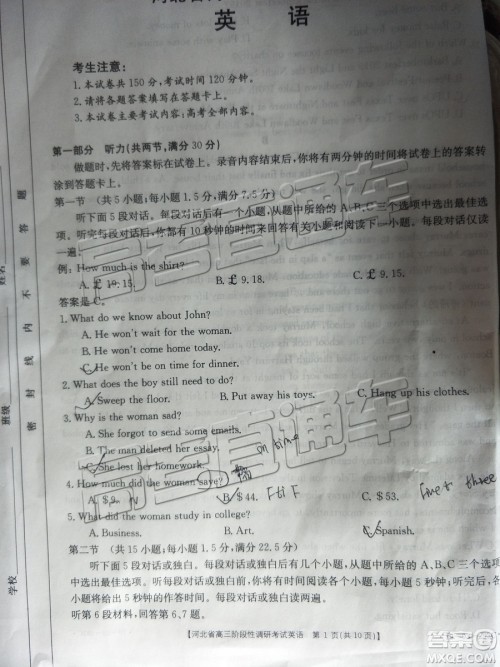 英 语
考生注意:
1.本试卷共 150 分,考试时间 120 分钟。
2.请将各题答案填写在答题卡上。
3.本试卷主要考试内容:高考全部内容。
第一部分 听力(共两节,满分 30 分)
做题时,先将答案标在试卷上。录音内容结束后,你将有两分钟的时间将试卷上的答案转
涂到答题卡上。
第一节 (共 5 小题;每小题 1.5 分,满分 7.5 分)
听下面 5 段对话。每段对话后有一个小题,从题中所给的 A、B、C 三个选项中选出最佳选
项。听完每段对话后,你都有 10 秒钟的时间来回答有关小题和阅读下一小题。每段对话仅读
一遍。
例:How much is the shirt?
A. £ 19. 15. B. £ 9. 18. C. £ 9. 15.
答案是 C。
1. What do we know about John?
A. He won't wait for the woman.
B. He won't come home today.
C. He won't be on time for dinner.
2. What does the boy still need to do?
A. Sweep the floor. B. Put away his toys. C. Hang up his clothes.
3. Why is the woman sad?
A. She forgot to send some emails.
B. The man deleted her essay.
C. She lost her homework.
on time
4. How much did the woman save?
A. $ 9. B. $ 44. C. $ 53.
5. What did the woman study in college?
A. Business. B. Art. C. Spanish.
第二节 (共 15 小题;每小题 1.5 分,满分 22.5 分)
听下面 5 段对话或独白。每段对话或独白后有几个小题,从题中所给的 A、B、C 三个选项
中选出最佳选项。听每段对话或独白前,你将有时间阅读各个小题,每小题 5 秒钟;听完后,各
小题将给出 5 秒钟的作答时间。每段对话或独白读两遍。
听第 6 段材料,回答第 6、7 题。
【河北省高三阶段性调研考试英语 第 1 页(共 10 页)】
密 封 线 内 不 要 答 题
姓名
班级
学校
高考直通车
高考直通车